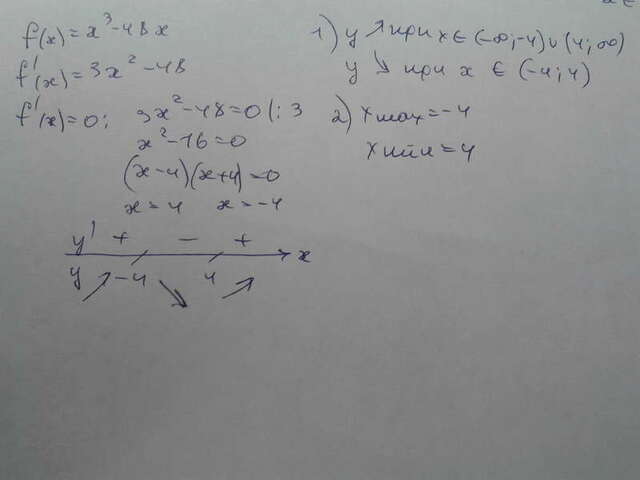 f(x)=x³-48x
f'(x)=3x²-48
f'(x)=0; 3x²-48=0 (:3
x²-16=0
(x-4)(x+4)=0
x=4 x=-4
y' + - +
x
y ↗ -4 ↘ 4 ↗
1) y ↗ при x ∈ (-∞;-4)∪(4;∞)
y ↘ при x ∈ (-4;4)
2) xmax=-4
xmin=4